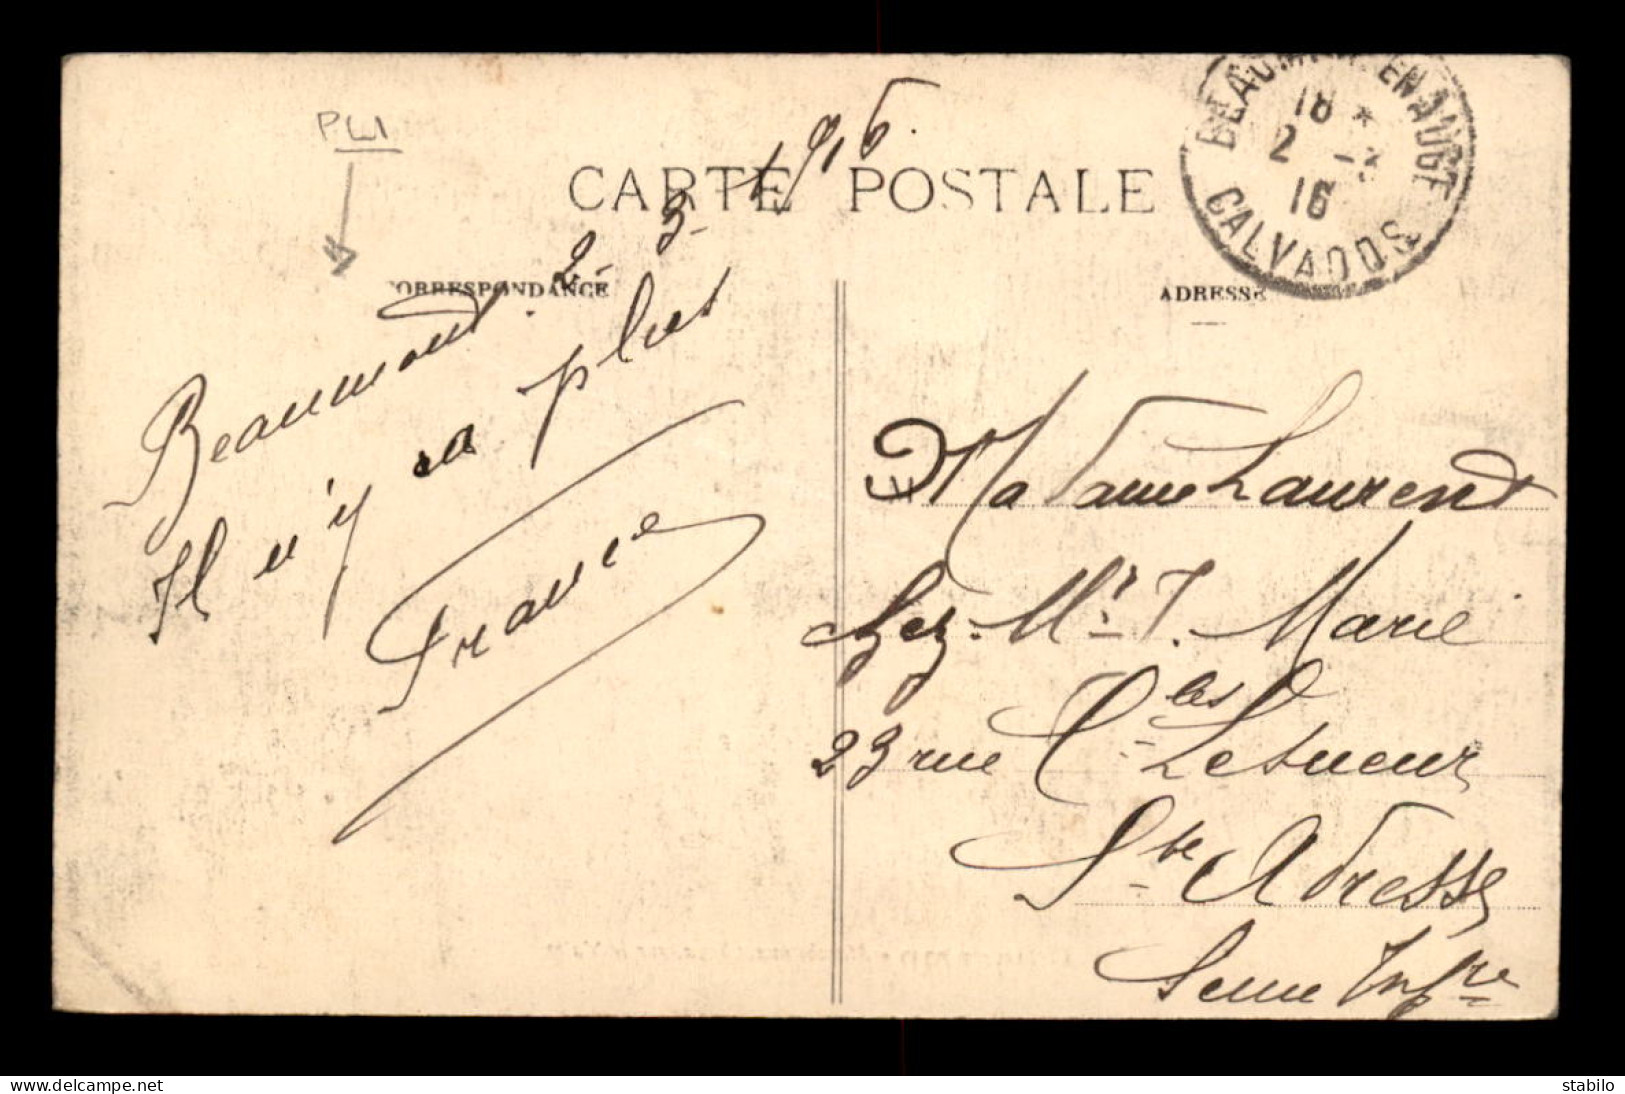 PLI
CARTE POSTALE
CORRESPONDANCE
Beaumont. 2-3-1916.
Il n'y a plus
France
BEAUMONT-EN-AUGE
18 *
2 -3
16
CALVADOS
ADRESSE
Madame Laurent
chez Mr J. Marie
23 rue Cles Lesueur
Ste Adresse
Seine Infre
www.delcampe.net
stabilo